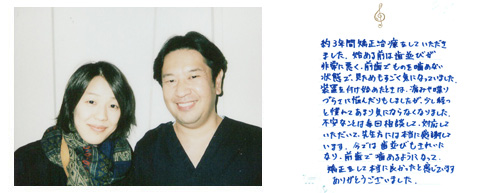 約3年間矯正治療をしていただき
ました。始める前は歯並びが
非常に悪く、前歯でものを噛めない
状態で、見ためもすごく気になっていました。
装置を付け始めたときは、痛みや喋り
づらさに悩んだりもしましたが、少し経つ
と慣れてあまり気にならなくなりました。
不安なことは毎回相談して、対応して
いただいて、先生方には本当に感謝して
います。今では歯並びもきれいに
なり、前歯で噛めるようになって、
矯正をして本当に良かったと感じています
ありがとうございました。